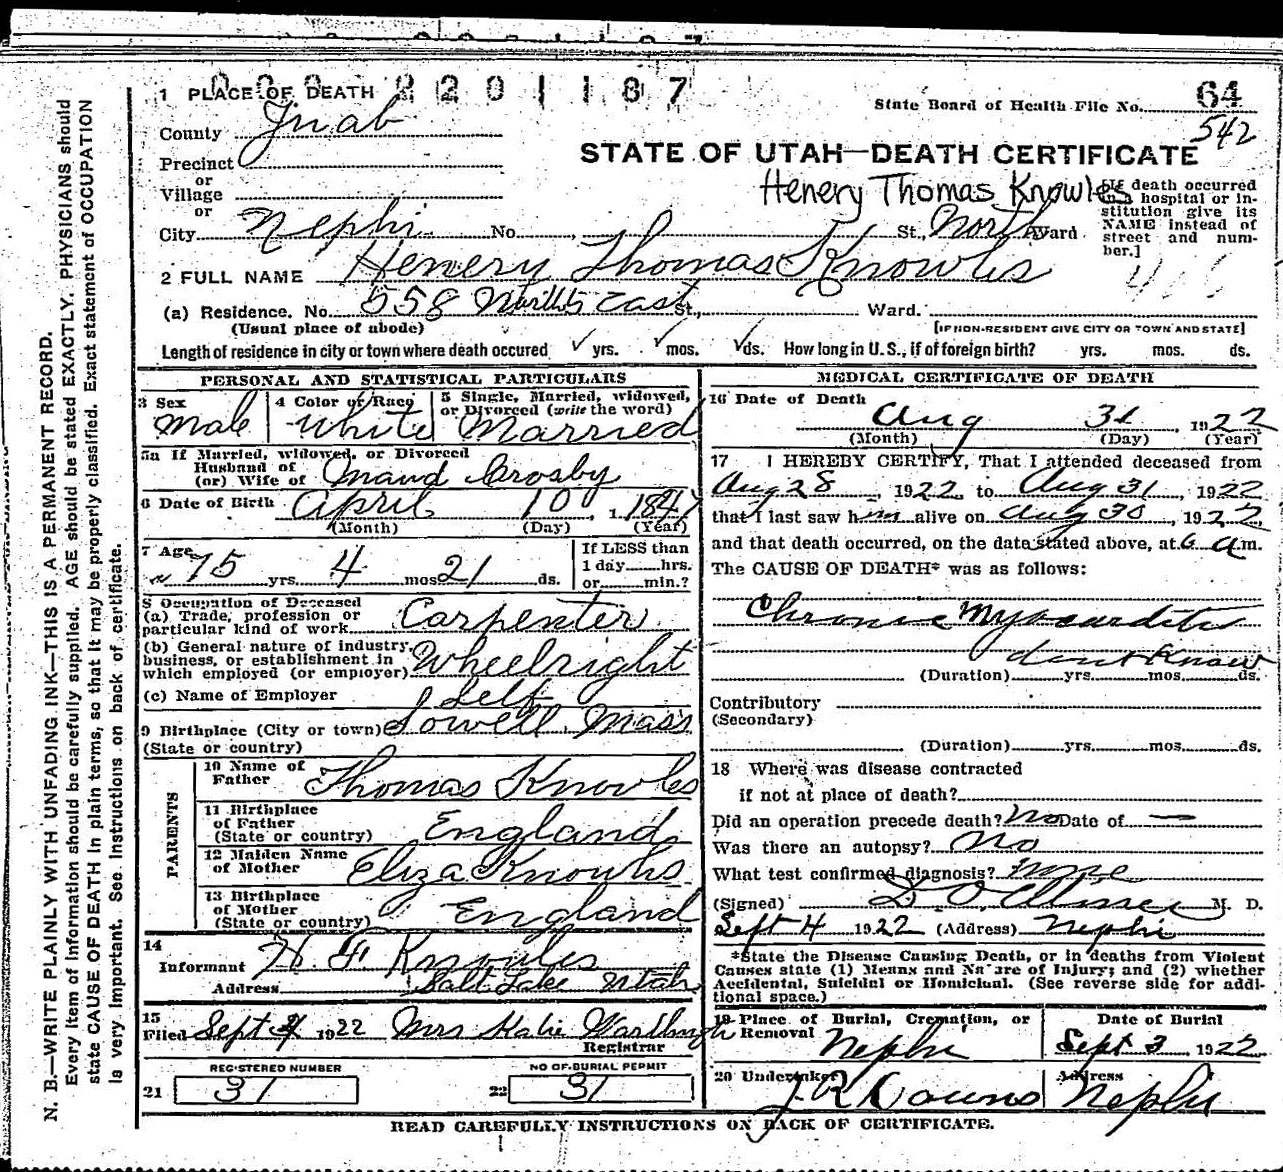 1 PLACE OF DEATH 220 1187
State Board of Health File No. 64
542
County Juab
STATE OF UTAH—DEATH CERTIFICATE
Precinct
or
Village
or
Henery Thomas Knowles
[If death occurred in a hospital or institution give its NAME instead of street and number.]
City Nephi No. , St., North Ward
2 FULL NAME Henery Thomas Knowles
(a) Residence. No. 558 North 5 East St., Ward.
(Usual place of abode) [IF NON-RESIDENT GIVE CITY OR TOWN AND STATE]
Length of residence in city or town where death occured ✓ yrs. ✓ mos. ✓ ds. How long in U. S., if of foreign birth? yrs. mos. ds.
PERSONAL AND STATISTICAL PARTICULARS
3 Sex 4 Color or Race 5 Single, Married, widowed,
or Divorced (write the word)
Male White Married
5a If Married, widowed, or Divorced
Husband of
(or) Wife of Maud Crosby
6 Date of Birth April 10, 1847
(Month) (Day) (Year)
7 Age 75 yrs. 4 mos 21 ds.
If LESS than
1 day......hrs.
or......min.?
8 Occupation of Deceased
(a) Trade, profession or
particular kind of work Carpenter
(b) General nature of industry,
business, or establishment in
which employed (or employer) Wheelright
(c) Name of Employer Self
9 Birthplace (City or town) Lowell Mass
(State or country)
PARENTS
10 Name of
Father Thomas Knowles
11 Birthplace
of Father
(State or country) England
12 Maiden Name
of Mother Eliza Knowls
13 Birthplace
of Mother
(State or country) England
14
Informant H F Knowles
Address Salt Lake Utah
15
Filed Sept 4 1922 Mrs Katie
Registrar
REGISTERED NUMBER NO OF BURIAL PERMIT
21 31 22 31
MEDICAL CERTIFICATE OF DEATH
16 Date of Death
Aug 31, 1922
(Month) (Day) (Year)
17 I HEREBY CERTIFY, That I attended deceased from
Aug 28, 1922 to Aug 31, 1922
that I last saw him alive on Aug 30, 1922
and that death occurred, on the date stated above, at 6 a m.
The CAUSE OF DEATH* was as follows:
Chronic Myocarditis
dont Know
(Duration) yrs. mos. ds.
Contributory
(Secondary)
(Duration) yrs. mos. ds.
18 Where was disease contracted
if not at place of death?
Did an operation precede death? No Date of —
Was there an autopsy? No
What test confirmed diagnosis? none
(Signed) D O M. D.
Sept 4 1922 (Address) Nephi
*State the Disease Causing Death, or in deaths from Violent
Causes state (1) Means and Nature of Injury; and (2) whether
Accidental, Suicidal or Homicidal. (See reverse side for addi-
tional space.)
19 Place of Burial, Cremation, or
Removal Nephi
Date of Burial
Sept 3 1922
20 Undertaker Address
J. R. Nephi
READ CAREFULLY INSTRUCTIONS ON BACK OF CERTIFICATE.
N. B.—WRITE PLAINLY WITH UNFADING INK—THIS IS A PERMANENT RECORD.
Every item of information should be carefully supplied. AGE should be stated EXACTLY. PHYSICIANS should
state CAUSE OF DEATH in plain terms, so that it may be properly classified. Exact statement of OCCUPATION
is very important. See instructions on back of certificate.